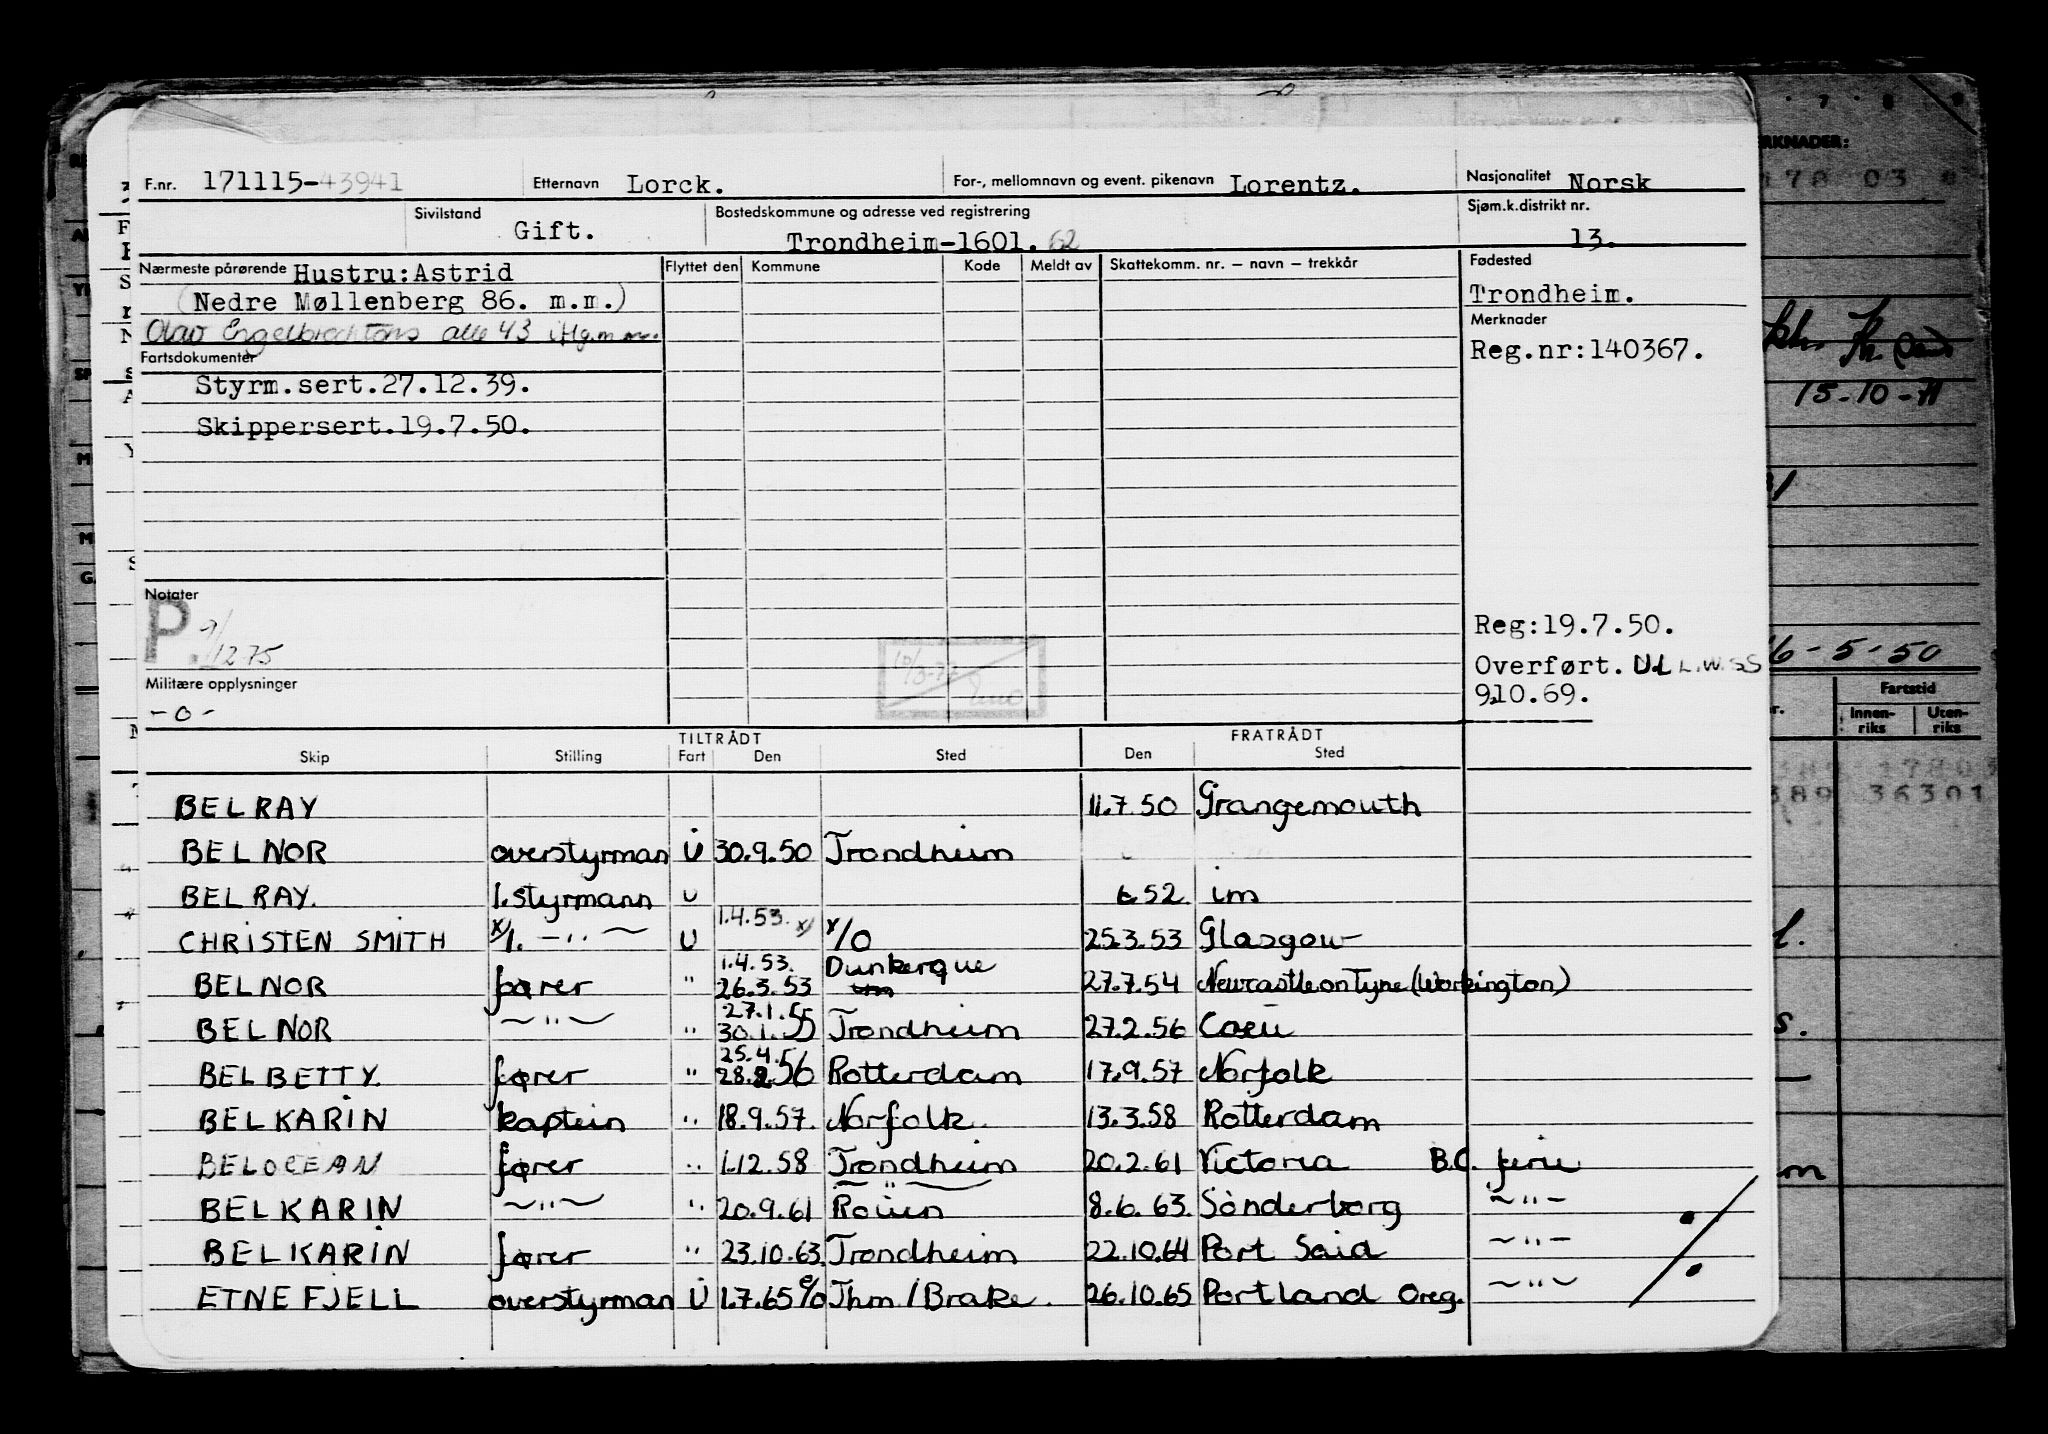 F.nr. 171115-43941 Etternavn Lorck. For-, mellomnavn og event. pikenavn Lorentz. Nasjonalitet Norsk
Sivilstand Gift. Bostedskommune og adresse ved registrering Trondheim-1601. 62 Sjøm.k.distrikt nr. 13.
Nærmeste pårørende Hustru:Astrid Flyttet den Kommune Kode Meldt av Skattekomm. nr. – navn – trekkår Fødested
(Nedre Møllenberg 86. m.m.) Trondheim.
Olav Engelbrechtsons alle 43 m.m. Merknader
Fartsdokumenter Reg.nr:140367.
Styrm.sert.27.12.39.
Skippersert.19.7.50.
Notater
P. 9/12 75 Reg:19.7.50.
Overført. N.L L.W.SS
Militære opplysninger 9.10.69.
- o -
TILTRÅDT FRATRÅDT
Skip Stilling Fart Den Sted Den Sted
BELRAY 11.7.50 Grangemouth
BELNOR overstyrman U 30.9.50 Trondheim
BELRAY. 1.styrmann U 52 im
CHRISTEN SMITH x/1. — " — U 1.4.53. x/ x/O 25.3.53 Glasgow
BELNOR fører " 1.4.53. 26.3.53 Dunkerque 27.7.54 Newcastle on Tyne (Workington)
BELNOR — " — " 27.1.55 30.1.55 Trondheim 27.2.56 Caen
BELBETTY. fører " 25.4. 28.2.56 Rotterdam 17.9.57 Norfolk
BELKARIN kaptein " 18.9.57. Norfolk. 13.3.58 Rotterdam
BELOCEAN fører " 1.12.58 Trondheim 20.2.61 Victoria B.C. ferie
BELKARIN — " — " 20.9.61 — " — Rouen 8.6.63. Sönderborg — " —
BELKARIN fører " 23.10.63. Trondheim 22.10.64 Port Said — " —
ETNEFJELL overstyrman U 1.7.65 % Thm / Brake. 26.10.65 Portland Oreg. — " —
15-10-71
16-5-50
Fartstid
Innen-riks Uten-riks
36301